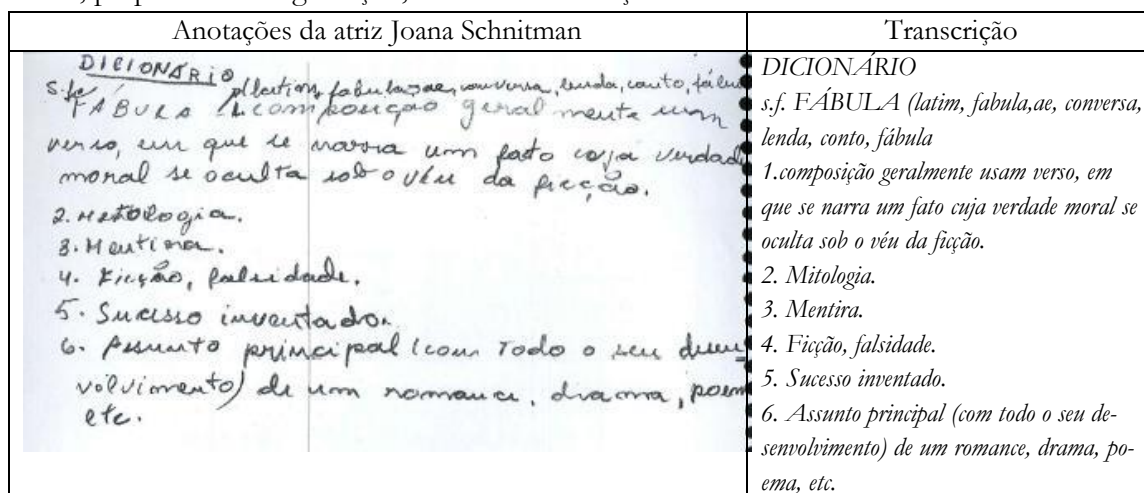 Anotações da atriz Joana Schnitman
DICIONÁRIO
s.f. (latim, fabula,ae, conversa, lenda, conto, fábu
FÁBULA 1.composição geralmente um
verso, em que se narra um fato cuja verdad
moral se oculta sob o véu da ficção.
2. Mitologia.
3. Mentira.
4. Ficção, falsidade.
5. Sucesso inventado.
6. Assunto principal (com todo o seu desen
volvimento) de um romance, drama, poem
etc.
Transcrição
DICIONÁRIO
s.f. FÁBULA (latim, fabula,ae, conversa,
lenda, conto, fábula
1.composição geralmente usam verso, em
que se narra um fato cuja verdade moral se
oculta sob o véu da ficção.
2. Mitologia.
3. Mentira.
4. Ficção, falsidade.
5. Sucesso inventado.
6. Assunto principal (com todo o seu de-
senvolvimento) de um romance, drama, po-
ema, etc.